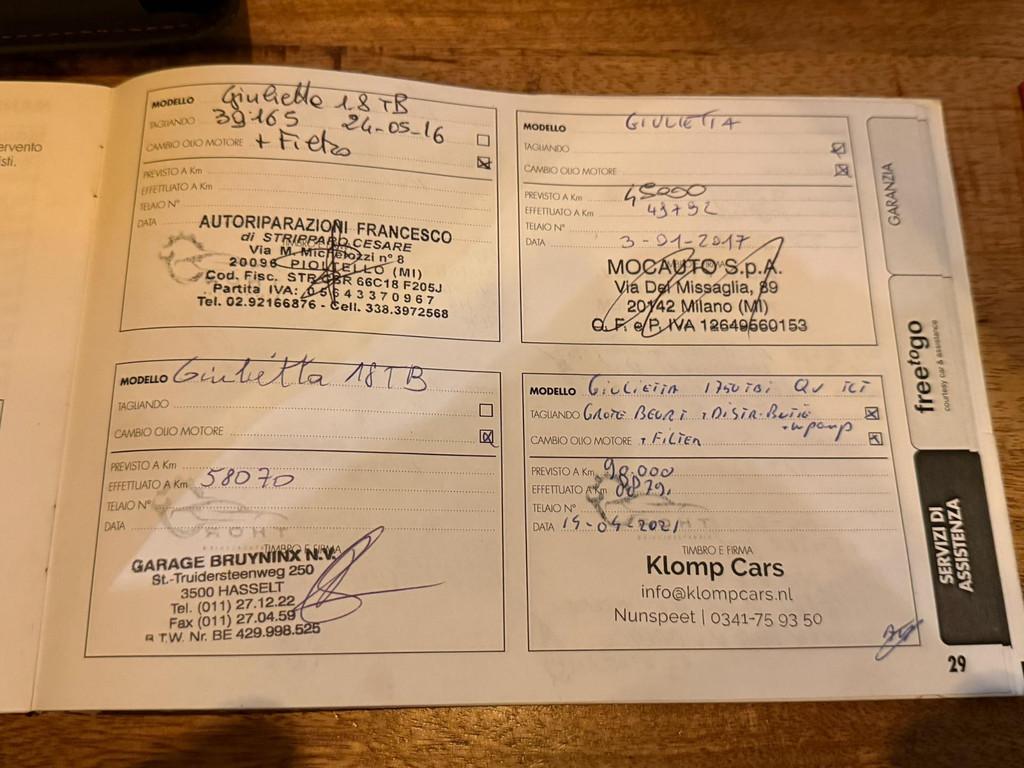 ervento
sti.
MODELLO Giulietta 1.8 TB
TAGLIANDO 39165 24-05-16
CAMBIO OLIO MOTORE + Filtro
PREVISTO A Km
EFFETTUATO A Km
TELAIO N°
DATA
AUTORIPARAZIONI FRANCESCO
di STRIPPARO CESARE
Via M. Michelozzi n° 8
20096 PIOLTELLO (MI)
Cod. Fisc. 66C18 F205J
Partita IVA: 05643370967
Tel. 02.92166876 - Cell. 338.3972568
MODELLO GIULIETTA
TAGLIANDO
CAMBIO OLIO MOTORE
PREVISTO A Km 45000
EFFETTUATO A Km 43792
TELAIO N°
DATA 3-01-2017
MOCAUTO S.p.A.
Via Dei Missaglia, 89
20142 Milano (MI)
C.F. e P. IVA 12649560153
MODELLO Giulietta 18TB
TAGLIANDO
CAMBIO OLIO MOTORE
PREVISTO A Km
EFFETTUATO A Km 58070
TELAIO N°
DATA
TIMBRO E FIRMA
GARAGE BRUYNINX N.V.
St.-Truidersteenweg 250
3500 HASSELT
Tel. (011) 27.12.22
Fax (011) 27.04.59
B.T.W. Nr. BE 429.998.525
MODELLO GIULIETTA 1750TBi QV TCT
TAGLIANDO GROTE BEURT + DISTRIBUTIE
+ wpomp
CAMBIO OLIO MOTORE + FILTER
PREVISTO A Km 98.000
EFFETTUATO A Km
TELAIO N°
DATA 14-04-2021
TIMBRO E FIRMA
Klomp Cars
info@klompcars.nl
Nunspeet | 0341-75 93 50
GARANZIA
freetogo
courtesy car & assistance
SERVIZI DI
ASSISTENZA
29